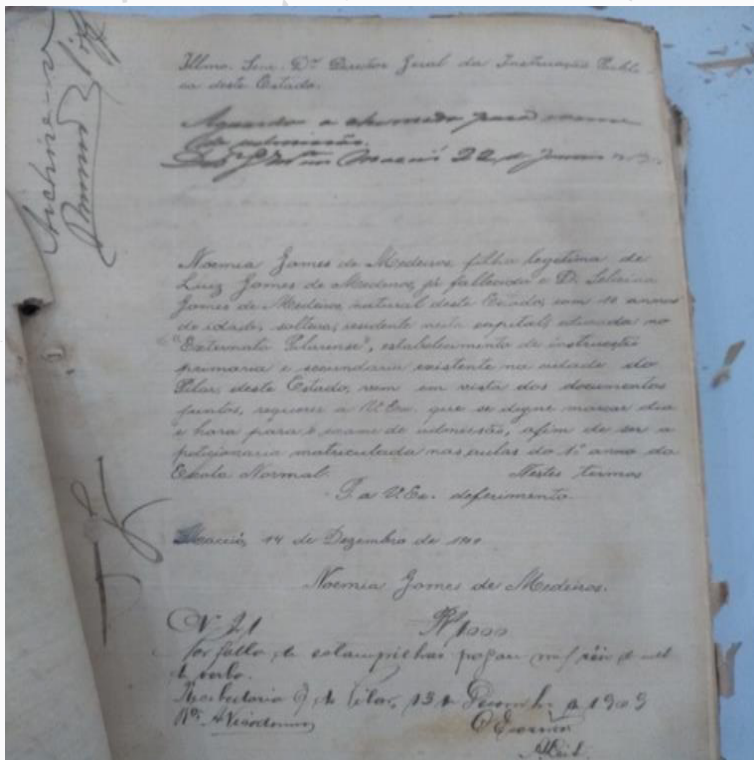 Illmo. Snr. Dr. Director Geral da Instrucção Publi
ca deste Estado.
Aguarde a chamada para exame
de admissão.
Maceió 22 de Janeiro
Noemia Gomes de Medeiros filha legitima de
Luiz Gomes de Medeiros, já fallecido e D.
Gomes de Medeiros, natural deste Estado, com annos
de idade, solteira, residente nesta capital, educada no
"Externato Pilarense", estabelecimento de instrucção
primaria e secundaria existente na cidade do
Pilar, deste Estado, vem em vista dos documentos
juntos, requerer a V. Exc. que se digne marcar dia
e hora para o exame de admissão, afim de ser a
peticionaria matriculada nas aulas do 1º anno da
Escola Normal. Nestes termos
P. a V. Ex. deferimento.
Maceió, 14 de Dezembro de
Noemia Gomes de Medeiros.
N. 21 Rs 1000
Por falta de estampilhas pagou mil réis de
Recebedoria de Pilar, 13 de Dezembro de 1909
O Escrivão